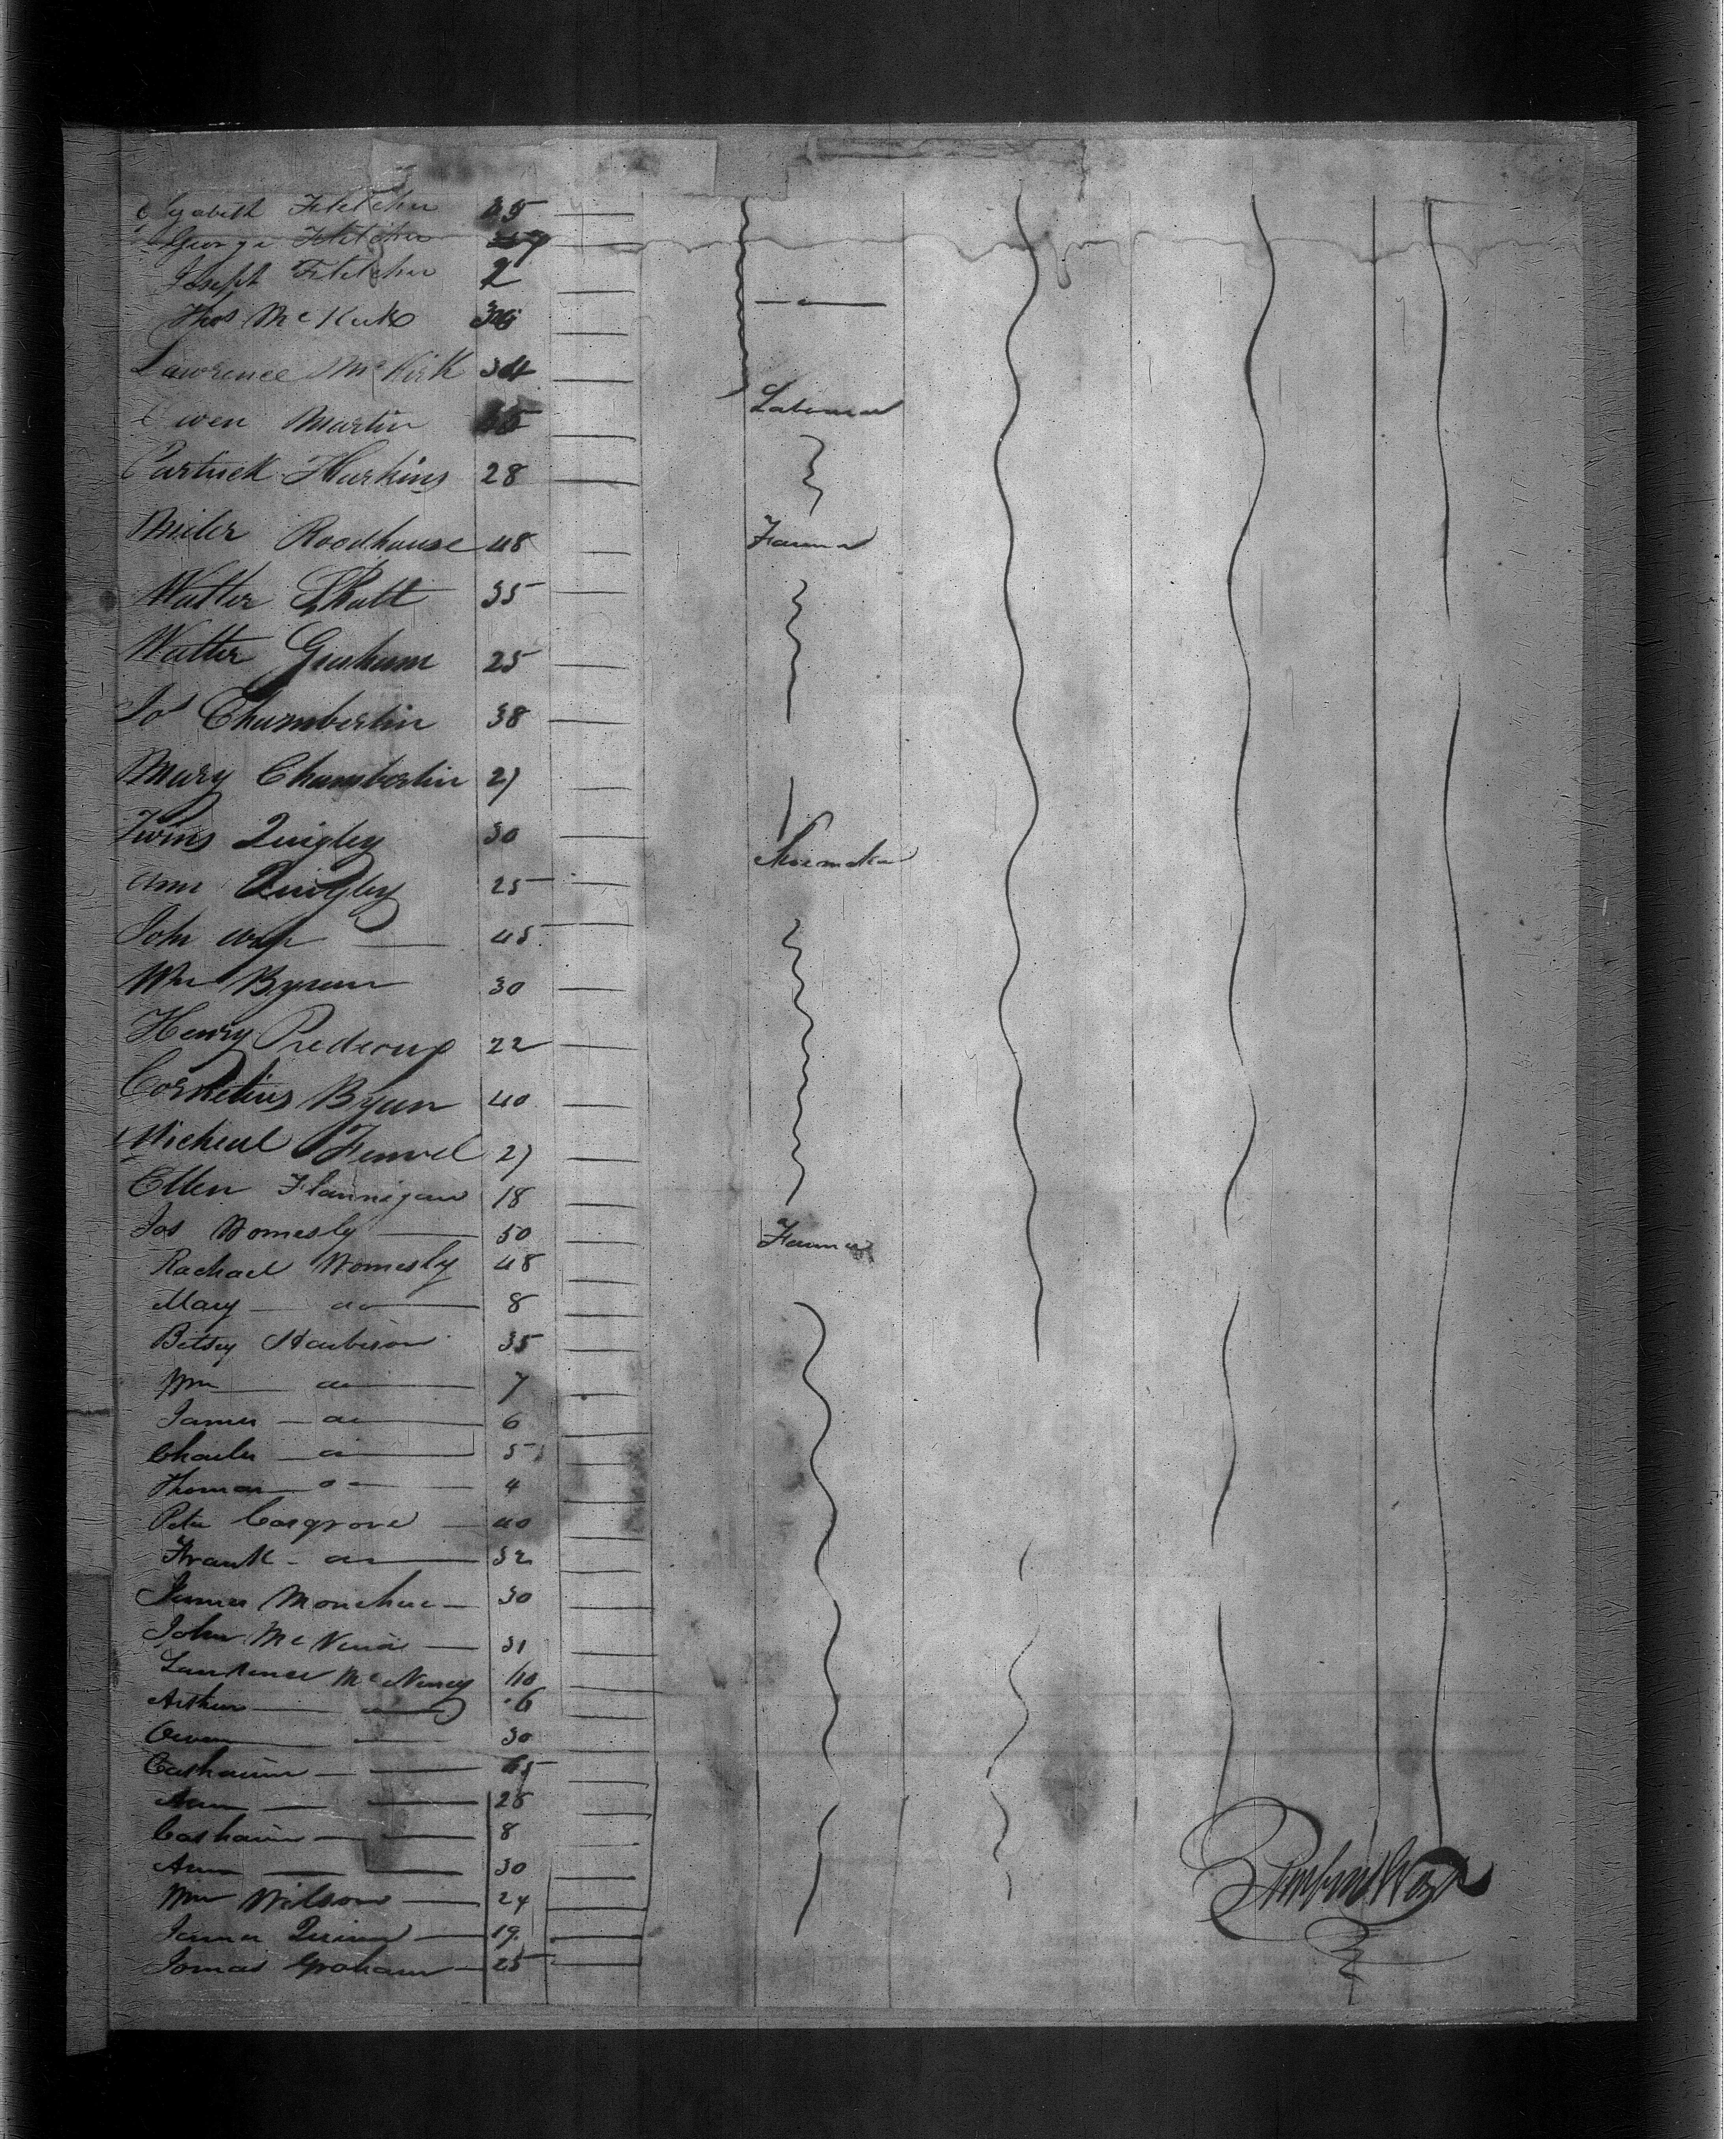 Elyabeth Fletcher 35
George Fletcher
Joseph Fletcher 2
Thos McKirk
Lawrence McKirk 34
Owen Martin
Laborer
Partrick Harkins 28
Miles Roodhouse 48
Farmer
Walter 35
Walter Graham 25
Jos Chamberlin 38
Mary Chamberlin 27
Twins Quigley 30
Shoemaker
Ann Quigley 25
John 45
Wm Byrum 30
Henry 22
Cornelius Byun 40
Micheal 27
Ellen Flannigan 18
Jos Womesly 50
Farmer
Rachael Womesly 48
Mary do 8
Betsey Harbison 35
Wm do 7
James do 6
Charles do 5
Thomas do 4
Peter Cosgrove 40
Frank do 32
James 30
John 31
Laurence McNeney 40
Arthur 6
Owen 30
Catharine 65
Ann 28
Catharine 8
Ann 30
Wm Wilson 24
James Quinn 19
Jomas Graham 25